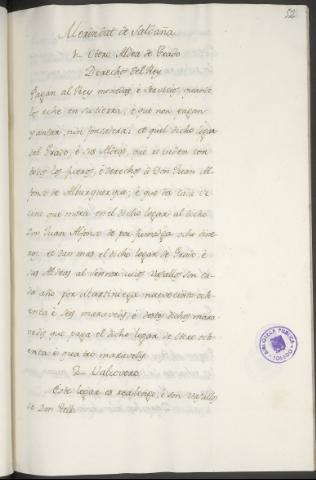 52
Merindat de Saldaña
Otero Aldea de Prado
Derechos del Rey
Pagan al Rey monedas, è servicios, quando
los eche en su tierra, è que non pagan
yantar, nin fonsadera: et quel dicho logar
del Prado, è sus Aldeas, que se suelen con
todos los fueros, è derechos à Don Juan Al-
fonso de Alburquerque; è que da cada ve-
cino que mora en el dicho logar al dicho
Don Juan Alfonso de por fumazga ocho dine-
ros: et dan mas el dicho logar de Prado, è
sus Aldeas al Señor cuios Vasallos son ca-
da año por Martiniega nuevecientos och-
enta è seis maravedis, è destos dichos mara-
vedis que paga el dicho logar de Otero och-
enta è quatro maravedis.
Valcovero
Este logar es realengo, è son Vasallos
de Don Tello
BIBLIOTECA PUBLICA
TOLEDO